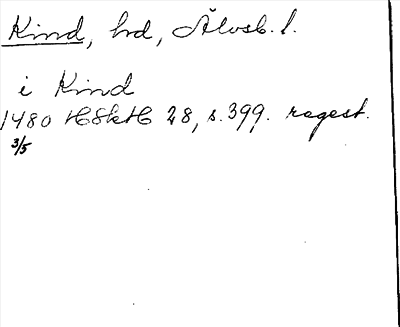 Kind, hd, Älvsb. l.
i Kind
1480 HSkH 28, s. 399. regest.
3/5